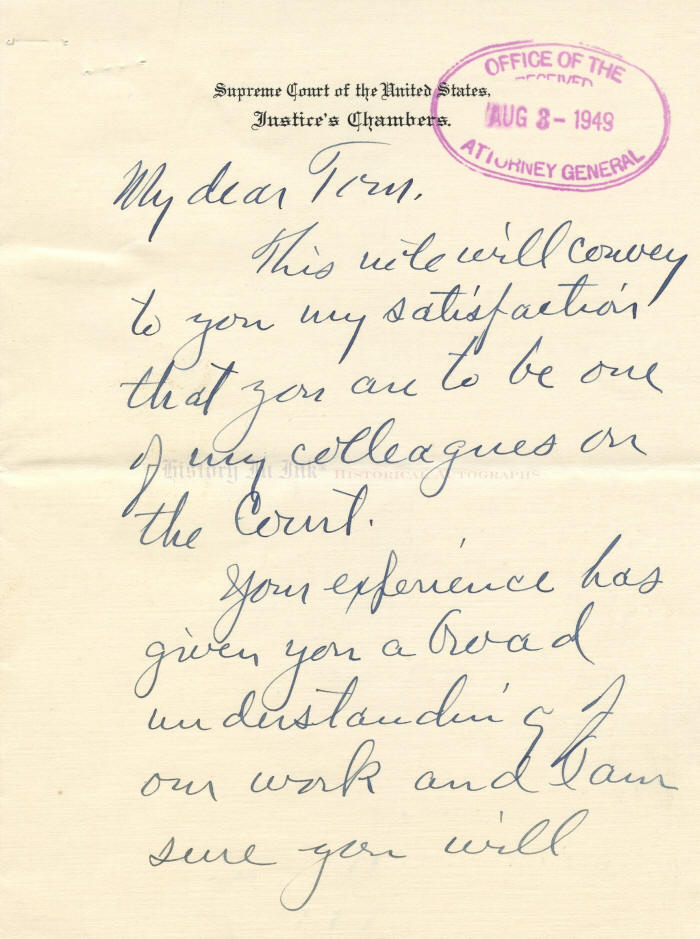 Supreme Court of the United States,
Justice's Chambers.
OFFICE OF THE
RECEIVED
AUG 3 - 1949
ATTORNEY GENERAL
My dear Tom.
This note will convey
to you my satisfaction
that you are to be one
of my colleagues on
History In Ink® HISTORICAL AUTOGRAPHS
the Court.
Your experience has
given you a broad
understanding of
our work and I am
sure you will